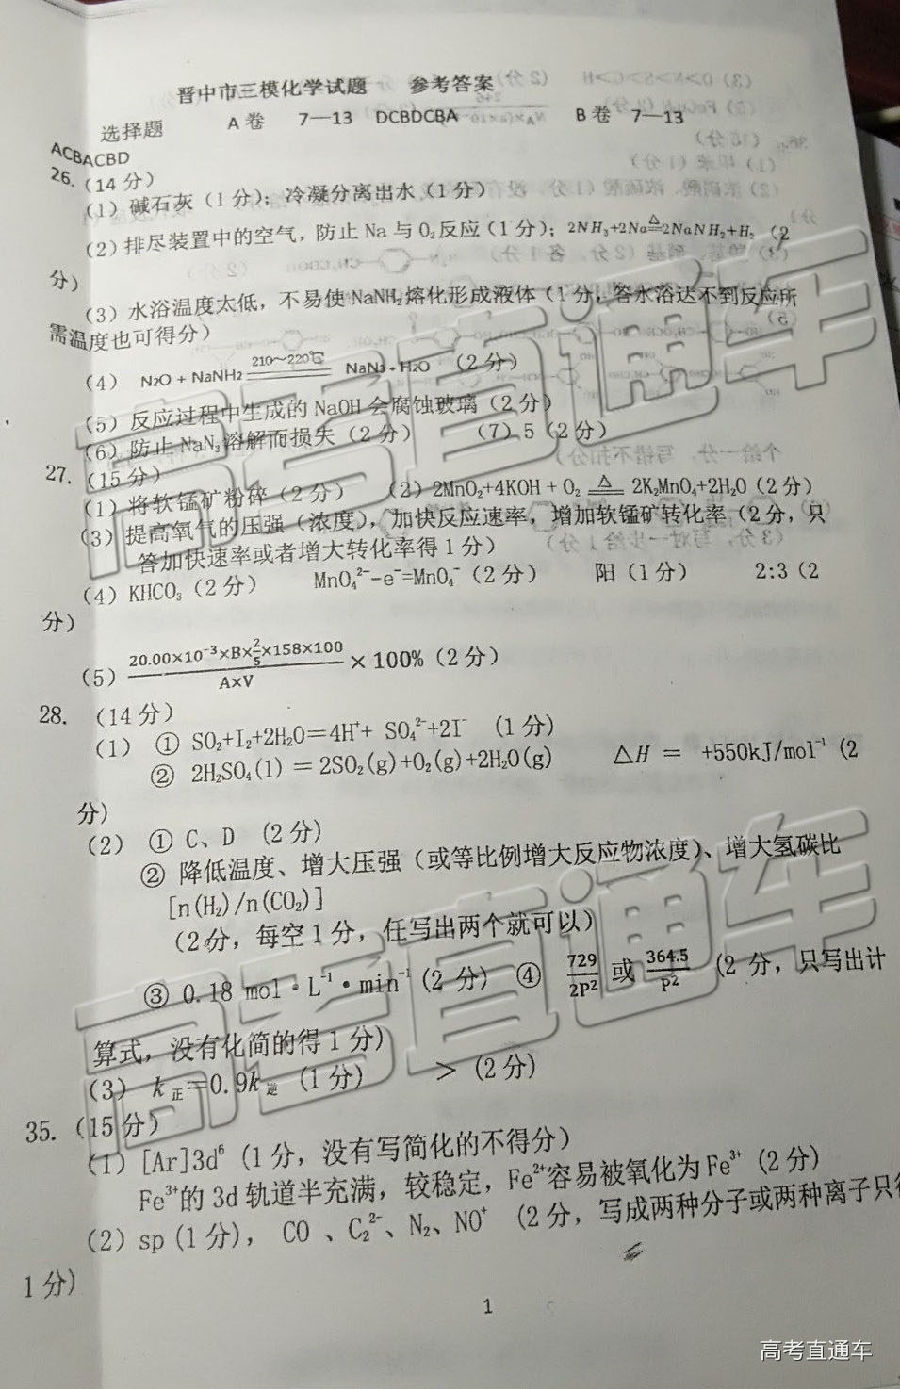 晋中市三模化学试题 参考答案
选择题 A 卷 7—13 DCBDCBA B 卷 7—13
ACBACBD
26.（14 分）
（1）碱石灰（1 分）；冷凝分离出水（1 分）
（2）排尽装置中的空气，防止 Na 与 O₂反应（1 分）；2NH₃+2Na≜2NaNH₂+H₂（2
分）
（3）水浴温度太低，不易使 NaNH₂熔化形成液体（1 分，答水浴达不到反应所
需温度也可得分）
（4）N₂O + NaNH₂ 210～220℃ NaN₃ + H₂O （2 分）
（5）反应过程中生成的 NaOH 会腐蚀玻璃（2 分）
（6）防止 NaN₃溶解而损失（2 分） （7）5（2 分）
27.（15 分）
（1）将软锰矿粉碎（2 分） （2）2MnO₂+4KOH + O₂ ≜ 2K₂MnO₄+2H₂O（2 分）
（3）提高氧气的压强（浓度），加快反应速率，增加软锰矿转化率（2 分，只
答加快速率或者增大转化率得 1 分）
（4）KHCO₃（2 分） MnO₄²⁻−e⁻=MnO₄⁻（2 分） 阳（1 分） 2:3（2
分）
（5）20.00×10⁻³×B×2/5×158×100 / A×V ×100%（2 分）
28.（14 分）
（1）① SO₂+I₂+2H₂O＝4H⁺+ SO₄²⁻+2I⁻ （1 分）
② 2H₂SO₄(l) ＝2SO₂(g)+O₂(g)+2H₂O(g) △H ＝ +550kJ/mol⁻¹（2
分）
（2）① C、D （2 分）
② 降低温度、增大压强（或等比例增大反应物浓度）、增大氢碳比
[n(H₂)/n(CO₂)]
（2 分，每空 1 分，任写出两个就可以）
③ 0.18 mol·L⁻¹·min⁻¹（2 分） ④ 729/2P² 或 364.5/P² （2 分，只写出计
算式，没有化简的得 1 分）
（3）k正＝0.9k逆 （1 分） ＞（2 分）
35.（15 分）
（1）[Ar]3d⁶（1 分，没有写简化的不得分）
Fe³⁺的 3d 轨道半充满，较稳定，Fe²⁺容易被氧化为 Fe³⁺（2 分）
（2）sp（1 分）， CO 、C₂²⁻、N₂、NO⁺ （2 分，写成两种分子或两种离子只得
1 分）
1
高考直通车